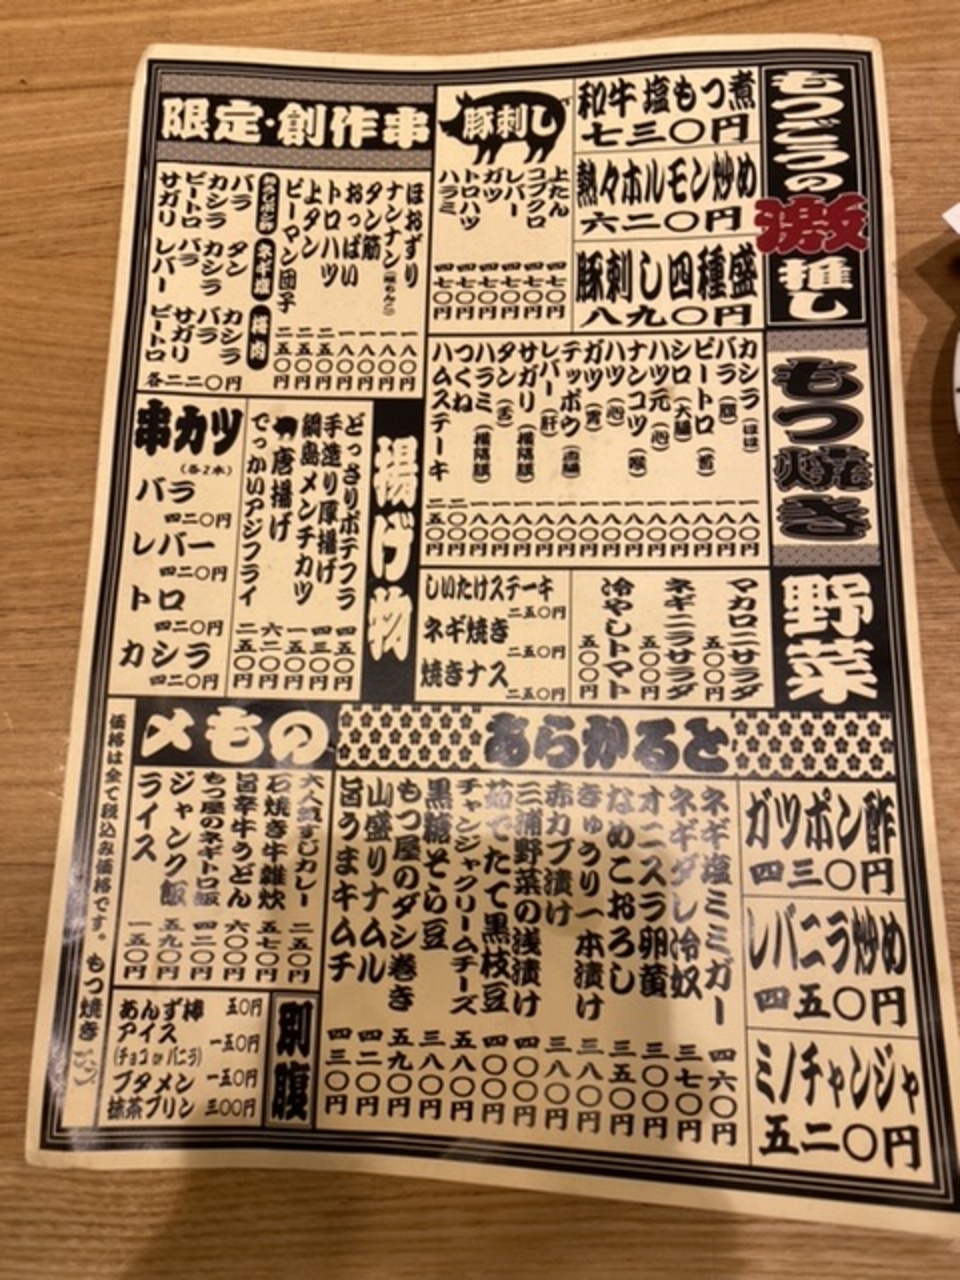 もつごうの激推し
和牛塩もつ煮
七三〇円
熱々ホルモン炒め
六二〇円
豚刺し四種盛
八九〇円
豚刺し
上たん 四七〇円
コブクロ 四七〇円
レバー 四七〇円
ガツ 四七〇円
トロハツ 四七〇円
ハラミ 四七〇円
限定・創作串
ほおずり 一八〇円
ナンナン 一八〇円
タン筋 一八〇円
おっぱい 一八〇円
トロハツ 二五〇円
上タン 二五〇円
ピーマン団子 二五〇円
ネギ塩
梅肉
バラ タン カシラ
カシラ カシラ バラ
ピートロ バラ サガリ
サガリ レバー ピートロ
各二二〇円
もつ焼き
カシラ(ほほ) 一八〇円
バラ 一八〇円
ピートロ(首) 一八〇円
シロ(大腸) 一八〇円
ハツ元(心) 一八〇円
ナンコツ(喉) 一八〇円
ハツ(心) 一八〇円
ガツ(胃) 一八〇円
テッポウ(直腸) 一八〇円
レバー(肝) 一八〇円
サガリ(横隔膜) 一八〇円
タン(舌) 一八〇円
ハラミ(横隔膜) 一八〇円
つくね 二〇〇円
ハムステーキ 二五〇円
野菜
マカロニサラダ 五〇〇円
ネギニラサラダ 五〇〇円
冷やしトマト 五〇〇円
しいたけステーキ
二五〇円
ネギ焼き
二五〇円
焼きナス
二五〇円
揚げ物
どっさりポテフラ 四五〇円
手造り厚揚げ 四三〇円
鍋島メンチカツ 一五〇円
唐揚げ 六二〇円
でっかいアジフライ 二五〇円
串カツ
(各2本)
バラ
四二〇円
レバー
四二〇円
トロ
四二〇円
カシラ
四二〇円
あらかると
ガツポン酢
四三〇円
レバニラ炒め
四五〇円
ミノチャンジャ
五二〇円
ネギ塩ミミガー 四六〇円
ネギダし冷奴 三七〇円
オニスラ卵黄 三〇〇円
なめこおろし 三五〇円
きゅうり一本漬け 三〇〇円
赤カブ漬け 三八〇円
三浦野菜の浅漬け 四〇〇円
茹でたて黒枝豆 四〇〇円
チャンジャクリームチーズ 五八〇円
黒糖そら豆 三八〇円
もつ屋のダシ巻き 五九〇円
山盛りナムル 四二〇円
旨うまキムチ 四三〇円
〆もの
すじカレー 二五〇円
石焼き牛雑炊 五七〇円
旨辛牛うどん 六〇〇円
もつ屋のネギトロ飯 四二〇円
ジャンク飯 五九〇円
ライス 一五〇円
別腹
あんず棒 五〇円
アイス
(チョコorバニラ) 一五〇円
ブタメン 一五〇円
抹茶プリン 三〇〇円
価格は全て税込み価格です。 もつ焼き